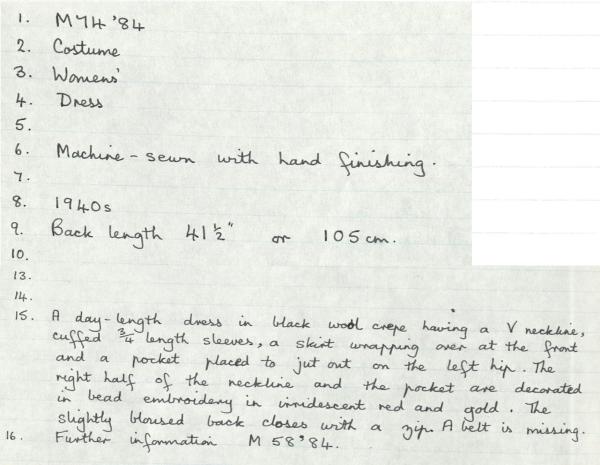 1. M74 '84
2. Costume
3. Womens'
4. Dress
5.
6. Machine-sewn with hand finishing.
7.
8. 1940s
9. Back length 41½" or 105cm.
10.
13.
14.
15. A day-length dress in black wool crepe having a V neckline,
cuffed ¾ length sleeves, a skirt wrapping over at the front
and a pocket placed to jut out on the left hip. The
right half of the neckline and the pocket are decorated
in bead embroidery in irridescent red and gold. The
slightly bloused back closes with a zip. A belt is missing.
16. Further information M 58'84.